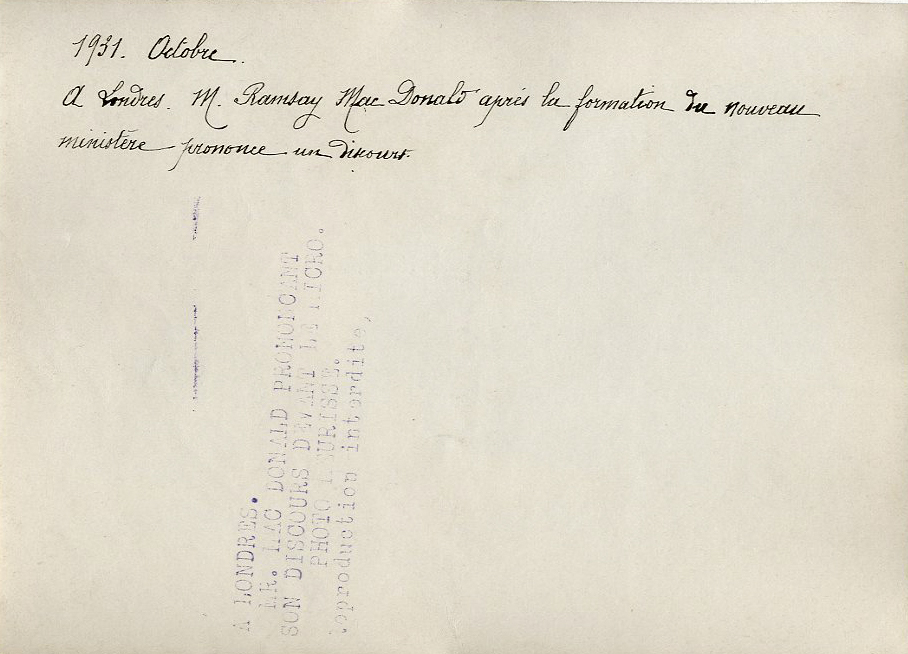 1931. Octobre.
A Londres. M. Ramsay Mac Donald après la formation du nouveau
ministère prononce un discours.
A LONDRES.
MR. MAC DONALD PRONONCANT
SON DISCOURS DEVANT LE MICRO.
PHOTO MEURISSE.
reproduction interdite,